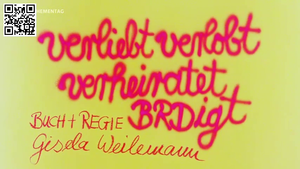 verliebt verlobt
verheiratet
BRDigt
BUCH + REGIE
Gisela Weilemann